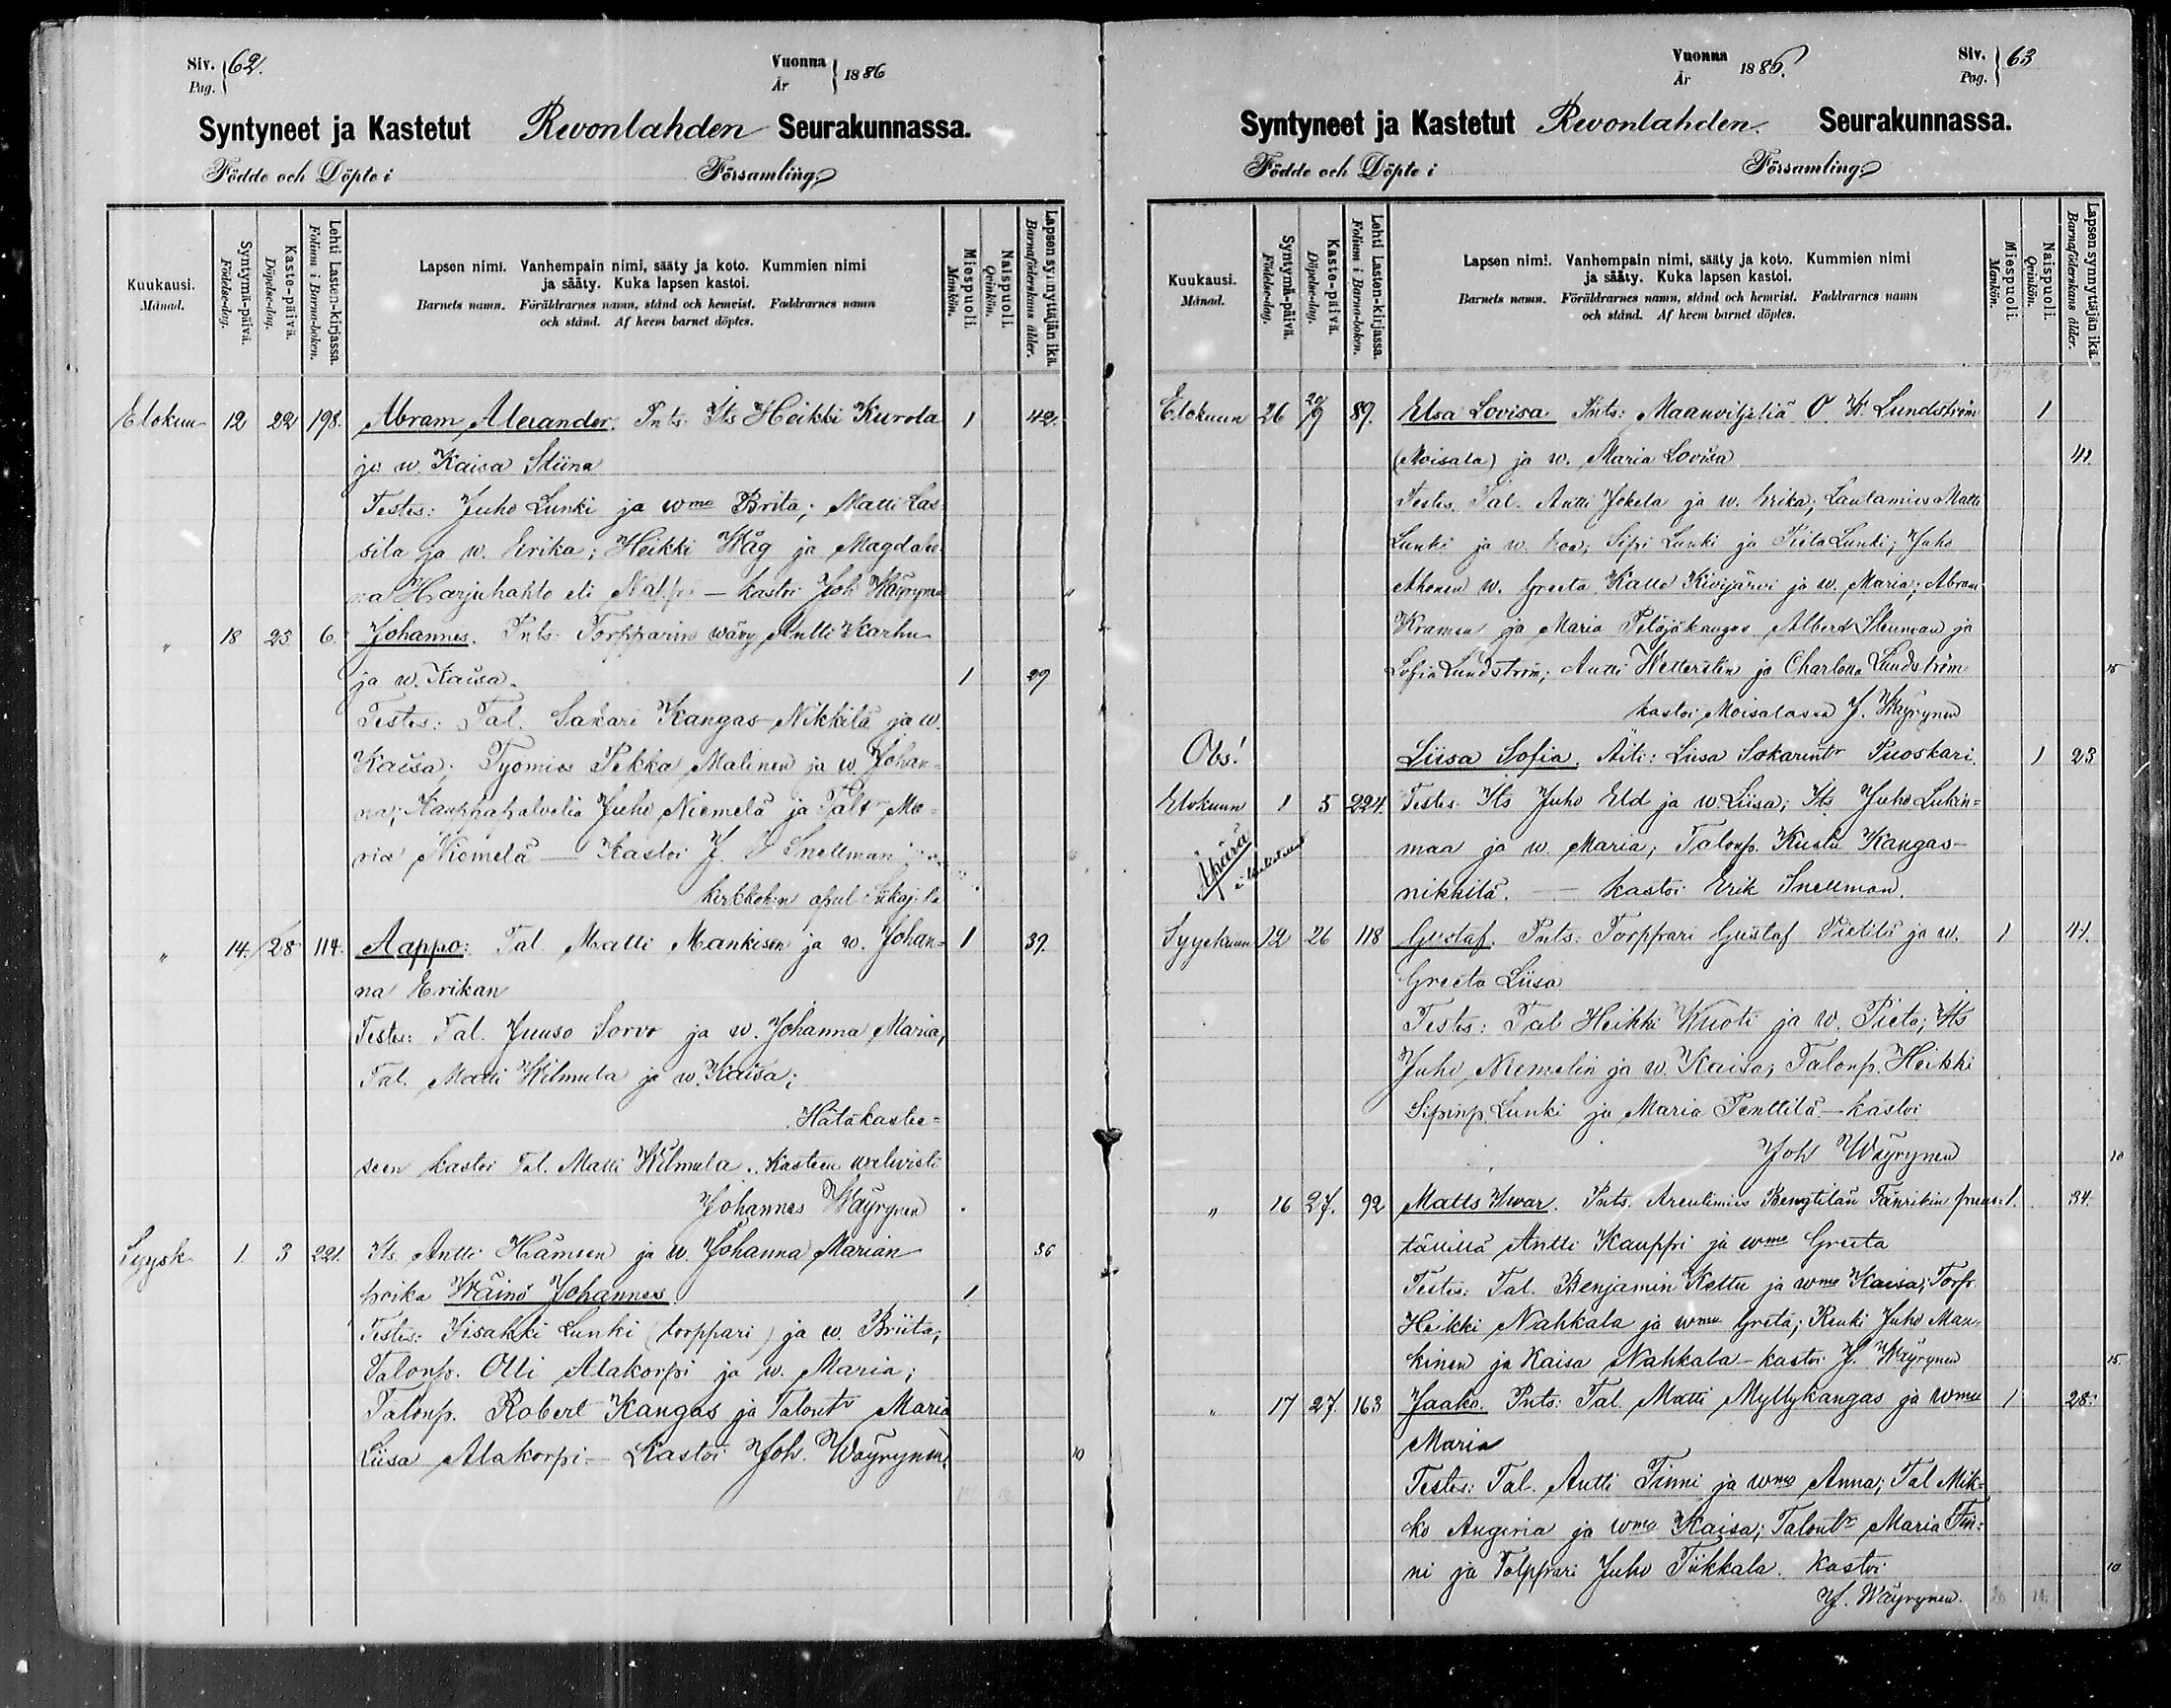 Siv. 62.
Pag.
Vuonna 1886
År
Syntyneet ja Kastetut Revonlahden Seurakunnassa.
Födde och Döpte i Församling.
Kuukausi.
Månad.
Syntymä-päivä.
Födelse-dag.
Kaste-päivä.
Döpelse-dag.
Lehti Lasten-kirjassa.
Folium i Barna-boken.
Lapsen nimi. Vanhempain nimi, sääty ja koto. Kummien nimi
ja sääty. Kuka lapsen kastoi.
Barnets namn. Föräldrarnes namn, stånd och hemvist. Faddrarnes namn
och stånd. Af hvem barnet döptes.
Miespuoli.
Mankön.
Naispuoli.
Qvinkön.
Lapsen synnyttäjän ikä.
Barnaföderskans ålder.
Elokuun 12 22 198. Abram Alexander. Pnts: Its Heikki Kurola 1 42.
ja w. Kaisa Stiina
Testes: Juho Lunki ja wmo Brita; Matti Las-
sila ja w. Erika; Heikki Wåg ja Magdale-
na Harjuhahto eli - kastoi Joh Wäyrynen
" 18 23 6. Johannes. Pnts: Torpparin wävy Antti Karhu
ja w. Kaisa. 1 29
Testes: Tal. Sakari Kangas-Nikkilä ja w.
Kaisa; Työmies Pekka Malinen ja w. Johan-
na; Kauppapalvelia Juho Niemelä ja Talt Ma-
ria Niemelä - Kastoi J. Snellman
kirkkoh:n apul
" 14. 28 114. Aappo: Tal. Matti Mankisen ja w. Johan- 1 39.
na Erikan
Testes: Tal. Juuso Sorvo ja w. Johanna Maria,
Tal. Matti Wilmula ja w. Kaisa;
Hätäkastee-
seen kastoi Tal. Matti Wilmula. Kasteen wahvisti
Johannes Wäyrynen
Syysk 1. 3 221. Its Antti Hämeen ja w. Johanna Marian 36
poika Wäinö Johannes. 1
Testes: Iisakki Lunki (torppari) ja w. Briita;
Talonp. Olli Alakorpi ja w. Maria;
Talonp. Robert Kangas ja Talontr Maria
Liisa Alakorpi - Kastoi Joh. Wäyrynen. 10
Vuonna 1886.
År
Siv. 63
Pag.
Syntyneet ja Kastetut Revonlahden. Seurakunnassa.
Födde och Döpte i Församling.
Kuukausi.
Månad.
Syntymä-päivä.
Födelse-dag.
Kaste-päivä.
Döpelse-dag.
Lehti Lasten-kirjassa.
Folium i Barna-boken.
Lapsen nimi. Vanhempain nimi, sääty ja koto. Kummien nimi
ja sääty. Kuka lapsen kastoi.
Barnets namn. Föräldrarnes namn, stånd och hemvist. Faddrarnes namn
och stånd. Af hvem barnet döptes.
Miespuoli.
Mankön.
Naispuoli.
Qvinkön.
Lapsen synnyttäjän ikä.
Barnaföderskans ålder.
Elokuun 26 20/9 89. Elsa Lovisa Pnts: Maanviljeliä O. W. Lundström 1
(Moisala) ja w. Maria Lovisa 41.
Testes. Tal. Antti Jokela ja w. Erika; Lautamies Matti
Lunki ja w. Eva; Sipi Lunki ja Pieta Lunki; Juho
Ahonen w. Greeta Kalle Kivijärvi ja w. Maria; Abram
Kramsu ja Maria Peläjäkangas Albert Stenman ja
Sofia Lundström; Antti Wetterstin ja Charlotta Lundström 15
kastoi Moisalassa J. Wäyrynen
Obs! Liisa Sofia. Äiti: Liisa Sakarintr Puoskari. 1 23
Elokuun 1 5 224. Testes. Its Juho Eld ja w. Liisa; Its Juho Lukin-
Äpärä
maa ja w. Maria; Talonp. Kustu Kangas-
nikkilä. - kastoi Erik Snellman.
Syyskuun 12 26 118 Gustaf. Pnts: Torppari Gustaf Pietilä ja w. 1 41.
Greeta Liisa
Testes: Tal Heikki Kuoti ja w. Pieta; Its
Juho Niemelin ja w. Kaisa; Talonp. Heikki
Sipinp. Lunki ja Maria Penttilä - kastoi
Joh Wäyrynen 10
" 16 27. 92 Matts Iwar. Pnts. Arentimies Bengtilän Fänrikin puus- 1. 34.
tällillä Antti Kauppi ja wmo Greeta
Testes: Tal. Benjamin Kettu ja wmo Kaisa; Torp.
Heikki Nahkala ja wmo Greta; Renki Juho Man-
kinen ja Kaisa Nahkala - kastoi J. Wäyrynen 15
" 17 27. 163 Jaako. Pnts: Tal. Matti Myllykangas ja wmo 1 28.
Maria
Testes: Tal. Antti Tinni ja wmo Anna; Tal Mik-
ko Angeria ja wmo Kaisa; Talontr Maria Tin-
ni ja Tolppari Juho Tiikkala. Kastoi 10
J. Wäyrynen.